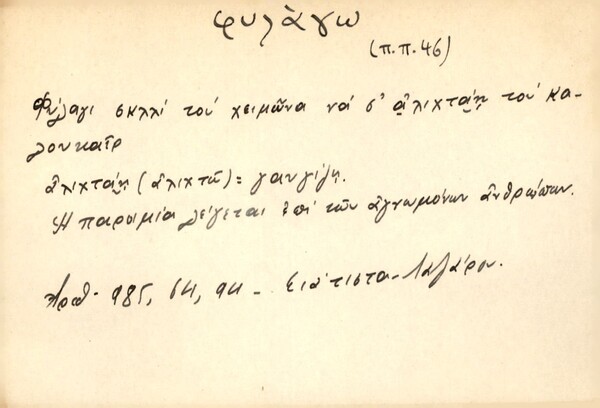 φυλάγω
(π.π. 46)
Φύλαγι σκλλί τού χειμῶνα νά σ' ἀλιχτάῃ τού κα-
λουκαῖρ
ἀλιχτάῃ (ἀλιχτῶ) = γαυγίζῃ.
Ἡ παροιμία λέγεται ἐπί τῶν ἀγνωμόνων ἀνθρώπων.
Ἀριθ. 985, 64, 94 - Σιάτιστα - Λαζάρου.